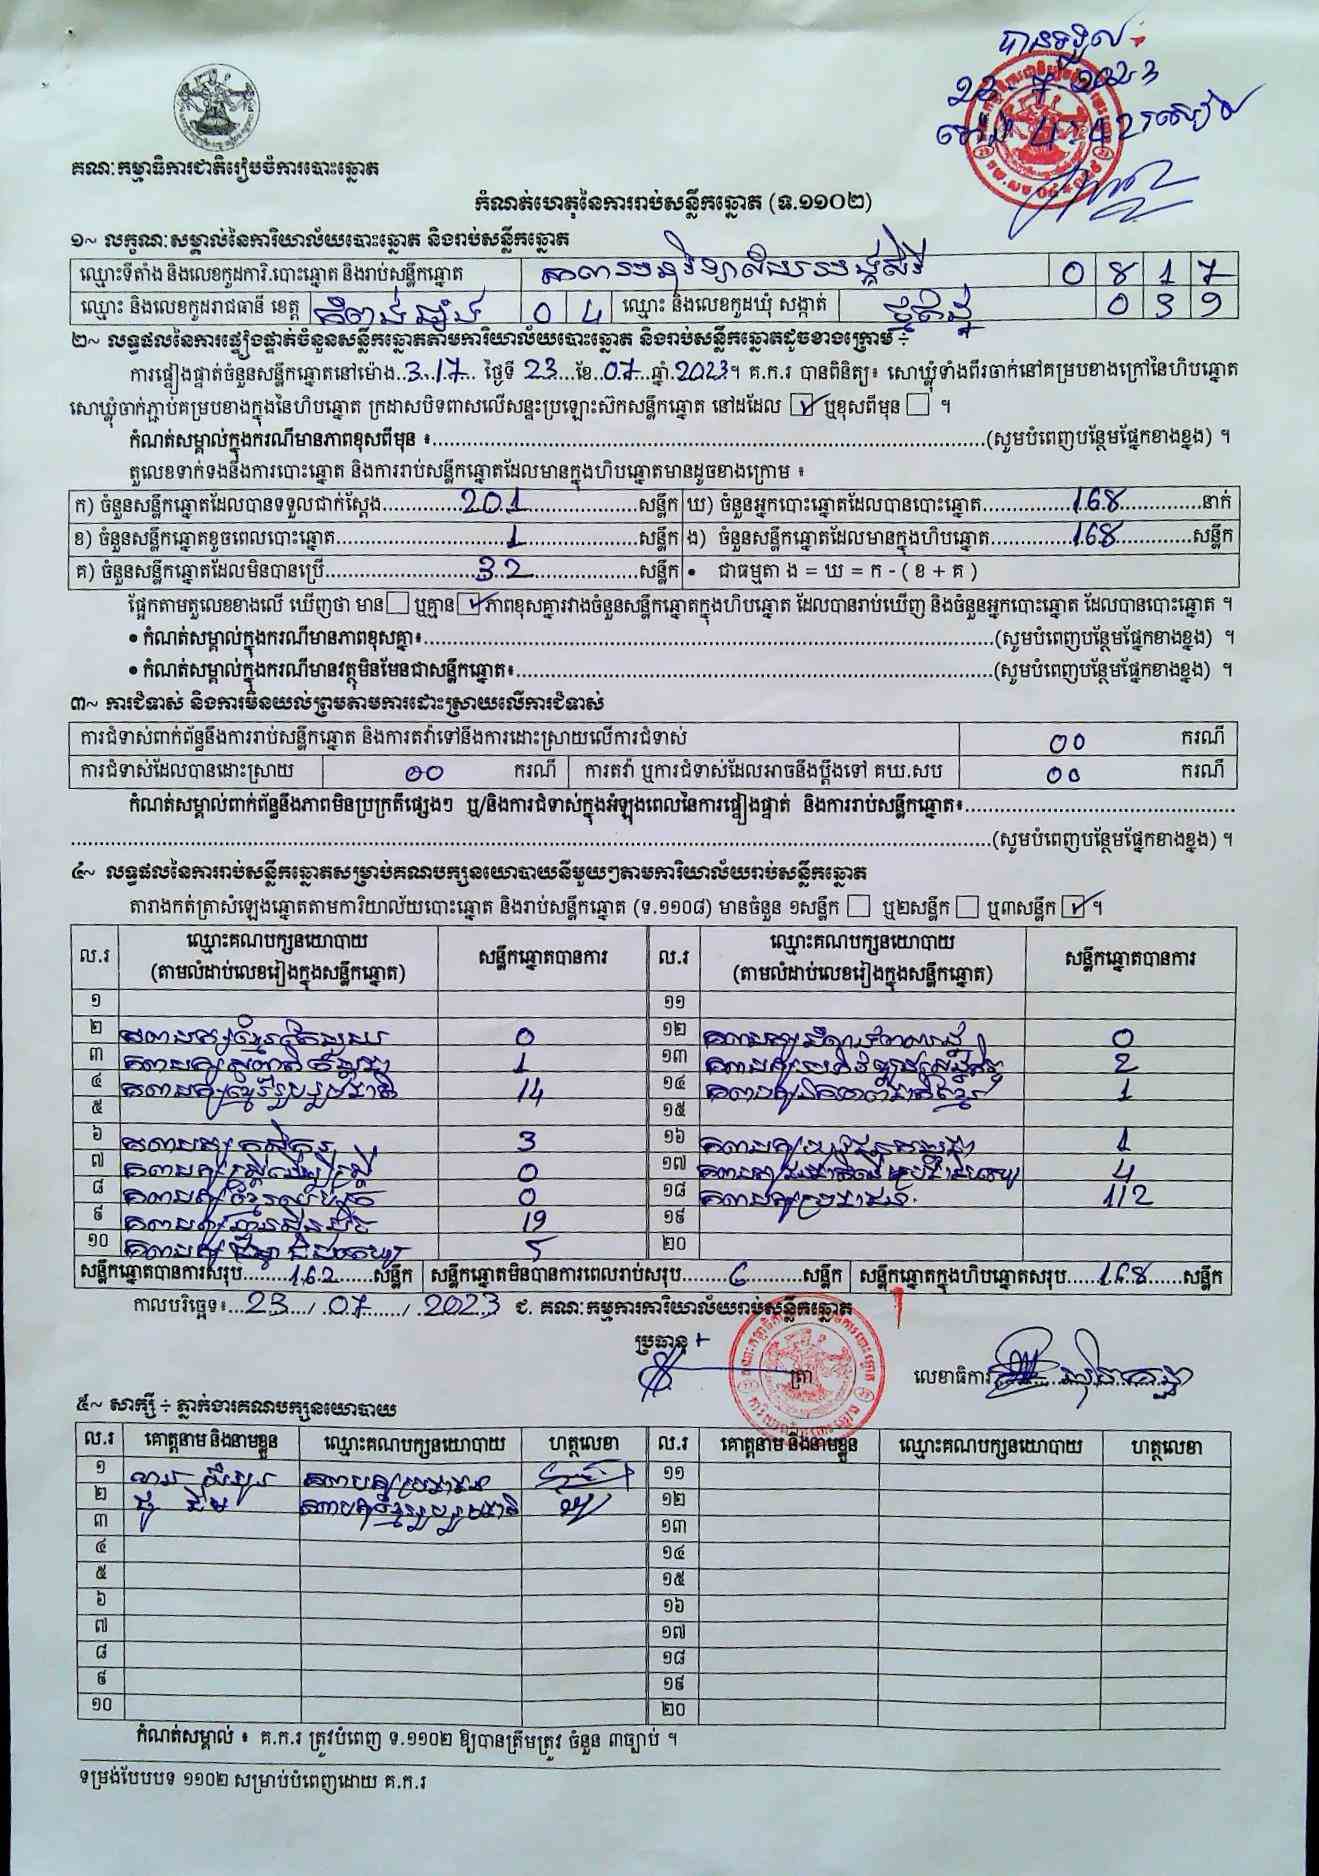 បានទទួល
គណៈកម្មាធិការជាតិរៀបចំការបោះឆ្នោត
កំណត់ហេតុនៃការរាប់សន្លឹកឆ្នោត (ទ.១១០២)
១~ លក្ខណៈសម្គាល់នៃការិយាល័យបោះឆ្នោត និងរាប់សន្លឹកឆ្នោត
ឈ្មោះទីតាំង និងលេខកូដការិ.បោះឆ្នោត និងរាប់សន្លឹកឆ្នោត 0 8 1 7
ឈ្មោះ និងលេខកូដរាជធានី ខេត្ត កំពង់ឆ្នាំង 0 4 ឈ្មោះ និងលេខកូដឃុំ សង្កាត់ 0 3 9
២~ លទ្ធផលនៃការផ្ទៀងផ្ទាត់ចំនួនសន្លឹកឆ្នោតតាមការិយាល័យបោះឆ្នោត និងរាប់សន្លឹកឆ្នោតដូចខាងក្រោម ÷
ការផ្ទៀងផ្ទាត់ចំនួនសន្លឹកឆ្នោតនៅម៉ោង..3.17.. ថ្ងៃទី 23 ...ខែ..07..ឆ្នាំ.2023។ គ.ក.រ បានពិនិត្យ៖ សោឃ្លុំទាំងពីរចាក់នៅគម្របខាងក្រៅនៃហិបឆ្នោត
សោឃ្លុំចាក់ភ្ជាប់គម្របខាងក្នុងនៃហិបឆ្នោត ក្រដាសបិទពាសលើសន្ទះប្រឡោះស៊កសន្លឹកឆ្នោត នៅដដែល ☑ ឬខុសពីមុន ☐ ។
កំណត់សម្គាល់ក្នុងករណីមានភាពខុសពីមុន ៖......(សូមបំពេញបន្ថែមផ្នែកខាងខ្នង) ។
តួលេខទាក់ទងនឹងការបោះឆ្នោត និងការរាប់សន្លឹកឆ្នោតដែលមានក្នុងហិបឆ្នោតមានដូចខាងក្រោម ៖
ក) ចំនួនសន្លឹកឆ្នោតដែលបានទទួលជាក់ស្តែង......201......សន្លឹក ឃ) ចំនួនអ្នកបោះឆ្នោតដែលបានបោះឆ្នោត......168......នាក់
ខ) ចំនួនសន្លឹកឆ្នោតខូចពេលបោះឆ្នោត......1......សន្លឹក ង) ចំនួនសន្លឹកឆ្នោតដែលមានក្នុងហិបឆ្នោត......168......សន្លឹក
គ) ចំនួនសន្លឹកឆ្នោតដែលមិនបានប្រើ......32......សន្លឹក • ជាធម្មតា ង = ឃ = ក - ( ខ + គ )
ផ្អែកតាមតួលេខខាងលើ ឃើញថា មាន ☐ ឬគ្មាន ☑ ភាពខុសគ្នារវាងចំនួនសន្លឹកឆ្នោតក្នុងហិបឆ្នោត ដែលបានរាប់ឃើញ និងចំនួនអ្នកបោះឆ្នោត ដែលបានបោះឆ្នោត ។
• កំណត់សម្គាល់ក្នុងករណីមានភាពខុសគ្នា៖......(សូមបំពេញបន្ថែមផ្នែកខាងខ្នង) ។
• កំណត់សម្គាល់ក្នុងករណីមានវត្ថុមិនមែនជាសន្លឹកឆ្នោត៖......(សូមបំពេញបន្ថែមផ្នែកខាងខ្នង) ។
៣~ ការជំទាស់ និងការមិនយល់ព្រមតាមការដោះស្រាយលើការជំទាស់
ការជំទាស់ពាក់ព័ន្ធនឹងការរាប់សន្លឹកឆ្នោត និងការតវ៉ាទៅនឹងការដោះស្រាយលើការជំទាស់ 00 ករណី
ការជំទាស់ដែលបានដោះស្រាយ 00 ករណី ការតវ៉ា ឬការជំទាស់ដែលអាចនឹងប្តឹងទៅ គឃ.សប 00 ករណី
កំណត់សម្គាល់ពាក់ព័ន្ធនឹងភាពមិនប្រក្រតីផ្សេងៗ ឬ/និងការជំទាស់ក្នុងអំឡុងពេលនៃការផ្ទៀងផ្ទាត់ និងការរាប់សន្លឹកឆ្នោត៖......
......(សូមបំពេញបន្ថែមផ្នែកខាងខ្នង) ។
៤~ លទ្ធផលនៃការរាប់សន្លឹកឆ្នោតសម្រាប់គណបក្សនយោបាយនីមួយៗតាមការិយាល័យរាប់សន្លឹកឆ្នោត
តារាងកត់ត្រាសំឡេងឆ្នោតតាមការិយាល័យបោះឆ្នោត និងរាប់សន្លឹកឆ្នោត (ទ.១១០៨) មានចំនួន ១សន្លឹក ☐ ឬ២សន្លឹក ☐ ឬ៣សន្លឹក ☑ ។
ល.រ ឈ្មោះគណបក្សនយោបាយ (តាមលំដាប់លេខរៀងក្នុងសន្លឹកឆ្នោត) សន្លឹកឆ្នោតបានការ ល.រ ឈ្មោះគណបក្សនយោបាយ (តាមលំដាប់លេខរៀងក្នុងសន្លឹកឆ្នោត) សន្លឹកឆ្នោតបានការ
១ ១១
២ 0 ១២ 0
៣ 1 ១៣ 2
៤ គណបក្សខ្មែររួបរួមជាតិ 14 ១៤ 1
៥ ១៥
៦ គណបក្សកសិករ 3 ១៦ 1
៧ គណបក្សស្ត្រីដើម្បីស្ត្រី 0 ១៧ 4
៨ 0 ១៨ គណបក្សប្រជាជន 112
៩ គណបក្សហ៊្វុនស៊ិនប៉ិច 19 ១៩
១០ 5 ២០
សន្លឹកឆ្នោតបានការសរុប......162......សន្លឹក សន្លឹកឆ្នោតមិនបានការពេលរាប់សរុប......6......សន្លឹក សន្លឹកឆ្នោតក្នុងហិបឆ្នោតសរុប......168......សន្លឹក
កាលបរិច្ឆេទ៖...23.../.07.../.2023 ជ. គណៈកម្មការការិយាល័យរាប់សន្លឹកឆ្នោត
ប្រធាន
ត្រា លេខាធិការ
៥~ សាក្សី ÷ ភ្នាក់ងារគណបក្សនយោបាយ
ល.រ គោត្តនាម និងនាមខ្លួន ឈ្មោះគណបក្សនយោបាយ ហត្ថលេខា ល.រ គោត្តនាម និងនាមខ្លួន ឈ្មោះគណបក្សនយោបាយ ហត្ថលេខា
១ គណបក្សប្រជាជន ១១
២ គណបក្សខ្មែររួបរួមជាតិ ១២
៣ ១៣
៤ ១៤
៥ ១៥
៦ ១៦
៧ ១៧
៨ ១៨
៩ ១៩
១០ ២០
កំណត់សម្គាល់ ៖ គ.ក.រ ត្រូវបំពេញ ទ.១១០២ ឱ្យបានត្រឹមត្រូវ ចំនួន ៣ច្បាប់ ។
ទម្រង់បែបបទ ១១០២ សម្រាប់បំពេញដោយ គ.ក.រ